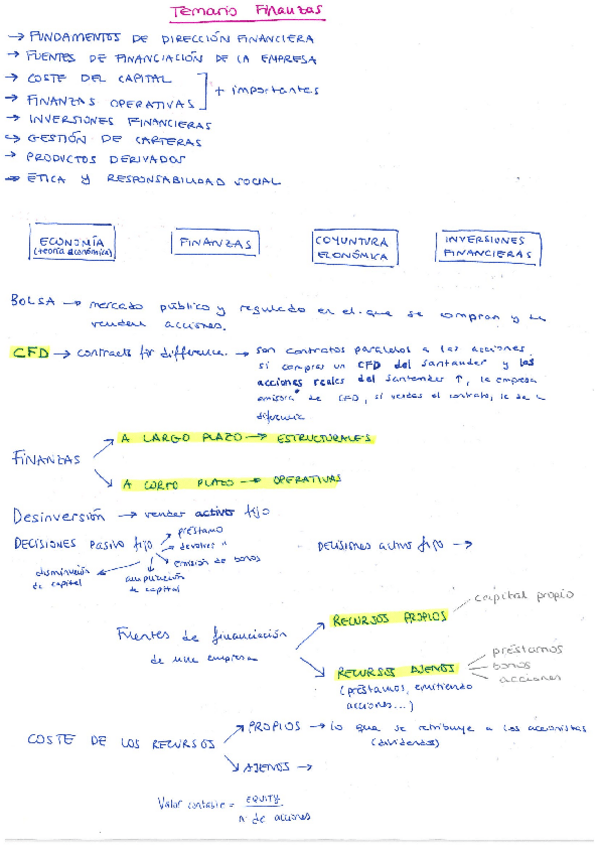 Temario Finanzas
→ FUNDAMENTOS DE DIRECCIÓN FINANCIERA
→ FUENTES DE FINANCIACIÓN DE LA EMPRESA
→ COSTE DEL CAPITAL
→ FINANZAS OPERATIVAS
+ importantes
→ INVERSIONES FINANCIERAS
→ GESTIÓN DE CARTERAS
→ PRODUCTOS DERIVADOS
→ ÉTICA Y RESPONSABILIDAD SOCIAL
ECONOMÍA
(teoría económica)
FINANZAS
COYUNTURA
ECONÓMICA
INVERSIONES
FINANCIERAS
BOLSA → mercado público y regulado en el que se compran y se
venden acciones.
CFD → contracts for difference. → son contratos paralelos a las acciones
si compras un CFD del santander y las
acciones reales del santander ↑, la empresa
emisora de CFD, si vendes el contrato, le da la
diferencia
FINANZAS
A LARGO PLAZO → ESTRUCTURALES
A CORTO PLAZO → OPERATIVAS
Desinversión → vender activo fijo
DECISIONES PASIVO fijo
préstamo
devolver
emisión de bonos
ampliación
de capital
disminución
de capital
DECISIONES activo fijo →
Fuentes de financiación
de una empresa
RECURSOS PROPIOS
capital propio
RECURSOS AJENOS
(préstamos, emitiendo
acciones...)
préstamos
bonos
acciones
COSTE DE LOS RECURSOS
PROPIOS → lo que se retribuye a los accionistas
(dividendos)
AJENOS →
Valor contable = EQUITY
n de acciones